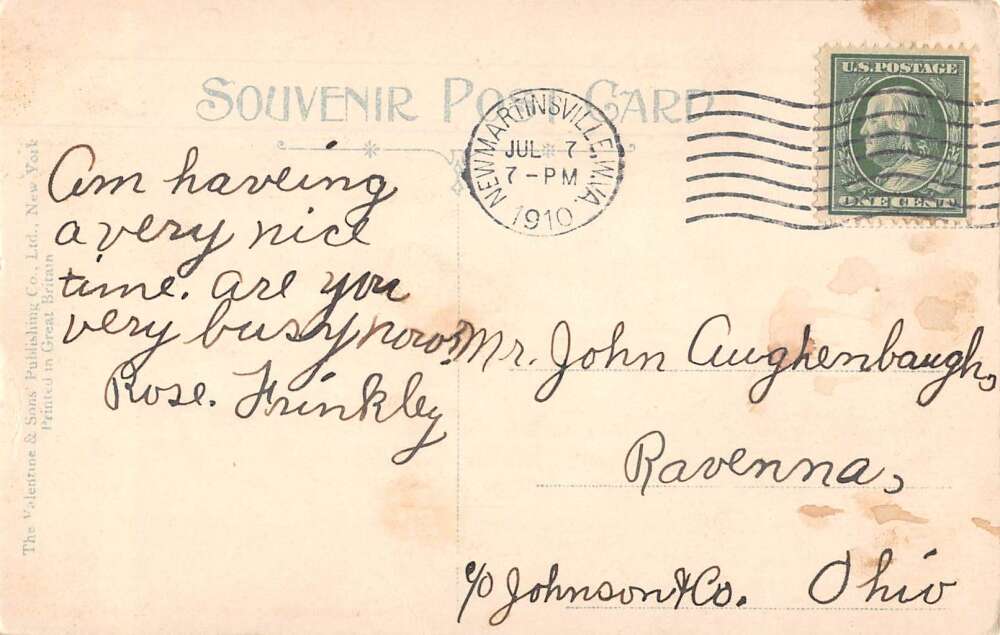 SOUVENIR POST CARD
NEW MARTINSVILLE, W.VA.
JUL 7
7-PM
1910
U.S. POSTAGE
ONE CENT
Am haveing
a very nice
time. are you
very busy now?
Rose. Frinkley
Mr. John Aughenbaugh,
Ravenna,
c/o Johnson & Co. Ohio
The Valentine & Sons' Publishing Co., Ltd., New York
Printed in Great Britain